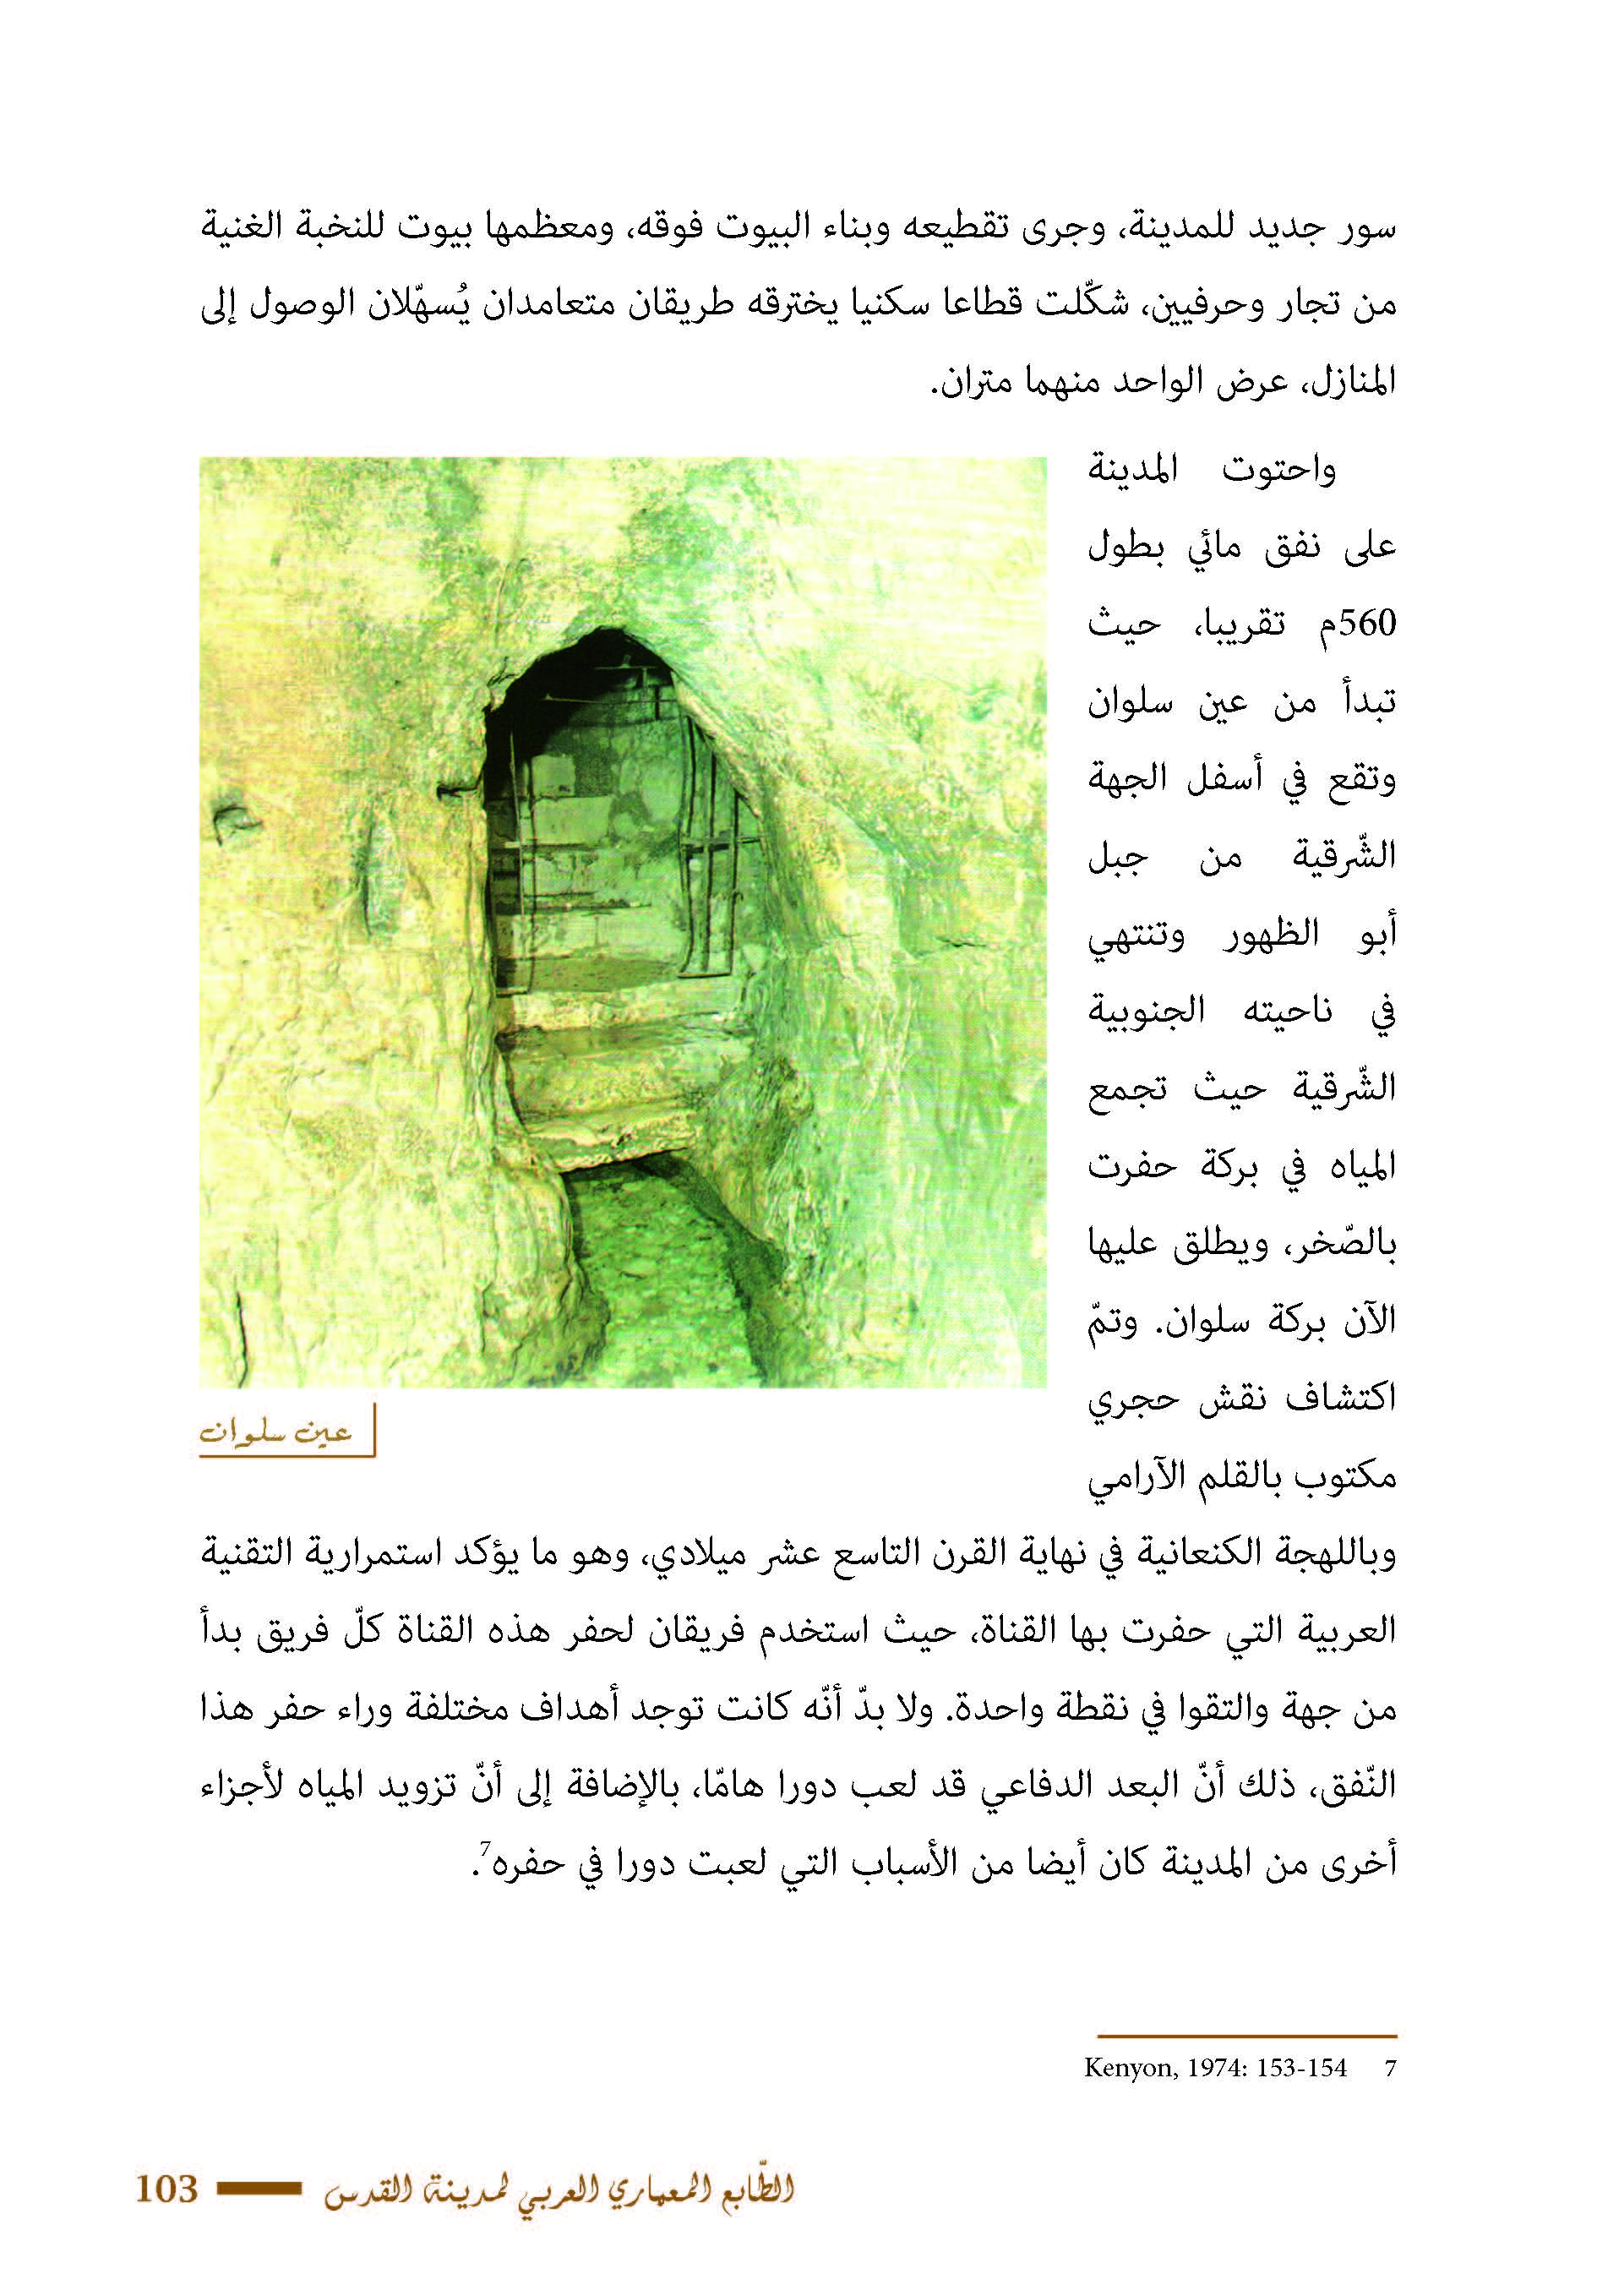 سور جديد للمدينة، وجرى تقطيعه وبناء البيوت فوقه، ومعظمها بيوت للنخبة الغنية
من تجار وحرفيين، شكّلت قطاعا سكنيا يخترقه طريقان متعامدان يُسهّلان الوصول إلى
المنازل، عرض الواحد منهما متران.
واحتوت المدينة
على نفق مائي بطول
560م تقريبا، حيث
تبدأ من عين سلوان
وتقع في أسفل الجهة
الشّرقية من جبل
أبو الظهور وتنتهي
في ناحيته الجنوبية
الشّرقية حيث تجمع
المياه في بركة حفرت
بالصّخر، ويطلق عليها
الآن بركة سلوان. وتمّ
اكتشاف نقش حجري
مكتوب بالقلم الآرامي
عين سلوان
وباللهجة الكنعانية في نهاية القرن التاسع عشر ميلادي، وهو ما يؤكد استمرارية التقنية
العربية التي حفرت بها القناة، حيث استخدم فريقان لحفر هذه القناة كلّ فريق بدأ
من جهة والتقوا في نقطة واحدة. ولا بدّ أنّه كانت توجد أهداف مختلفة وراء حفر هذا
النّفق، ذلك أنّ البعد الدفاعي قد لعب دورا هامّا، بالإضافة إلى أنّ تزويد المياه لأجزاء
أخرى من المدينة كان أيضا من الأسباب التي لعبت دورا في حفره7.
7 Kenyon, 1974: 153-154
الطّابع المعماري العربي لمدينة القدس 103